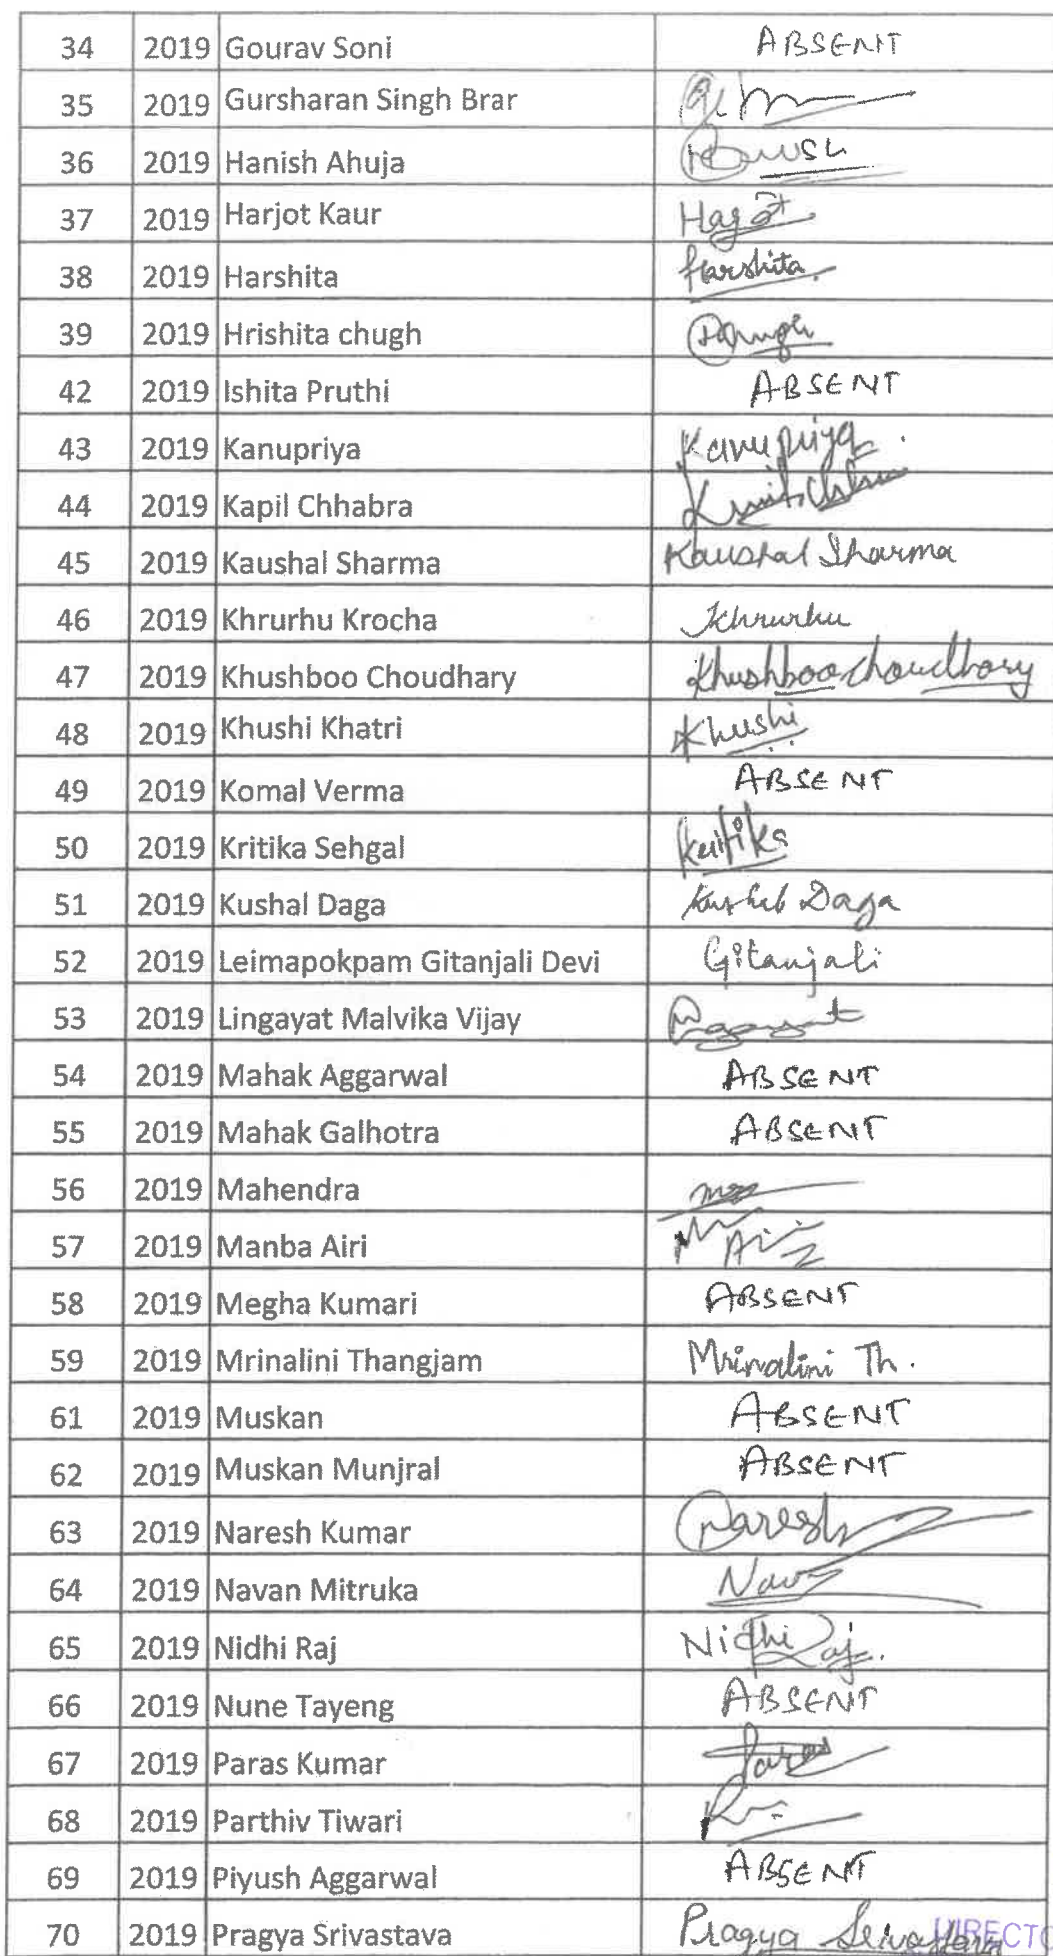 34 2019 Gourav Soni ABSENT
35 2019 Gursharan Singh Brar
36 2019 Hanish Ahuja
37 2019 Harjot Kaur
38 2019 Harshita Harshita
39 2019 Hrishita chugh
42 2019 Ishita Pruthi ABSENT
43 2019 Kanupriya Kanupriya
44 2019 Kapil Chhabra
45 2019 Kaushal Sharma Kaushal Sharma
46 2019 Khrurhu Krocha Khrurhu
47 2019 Khushboo Choudhary Khushboo choudhary
48 2019 Khushi Khatri Khushi
49 2019 Komal Verma ABSENT
50 2019 Kritika Sehgal Kritika
51 2019 Kushal Daga Kushal Daga
52 2019 Leimapokpam Gitanjali Devi Gitanjali
53 2019 Lingayat Malvika Vijay
54 2019 Mahak Aggarwal ABSENT
55 2019 Mahak Galhotra ABSENT
56 2019 Mahendra
57 2019 Manba Airi
58 2019 Megha Kumari ABSENT
59 2019 Mrinalini Thangjam Mrinalini Th.
61 2019 Muskan ABSENT
62 2019 Muskan Munjral ABSENT
63 2019 Naresh Kumar Naresh
64 2019 Navan Mitruka
65 2019 Nidhi Raj Nidhi Raj.
66 2019 Nune Tayeng ABSENT
67 2019 Paras Kumar Paras
68 2019 Parthiv Tiwari
69 2019 Piyush Aggarwal ABSENT
70 2019 Pragya Srivastava Pragya Srivastava DIRECTO